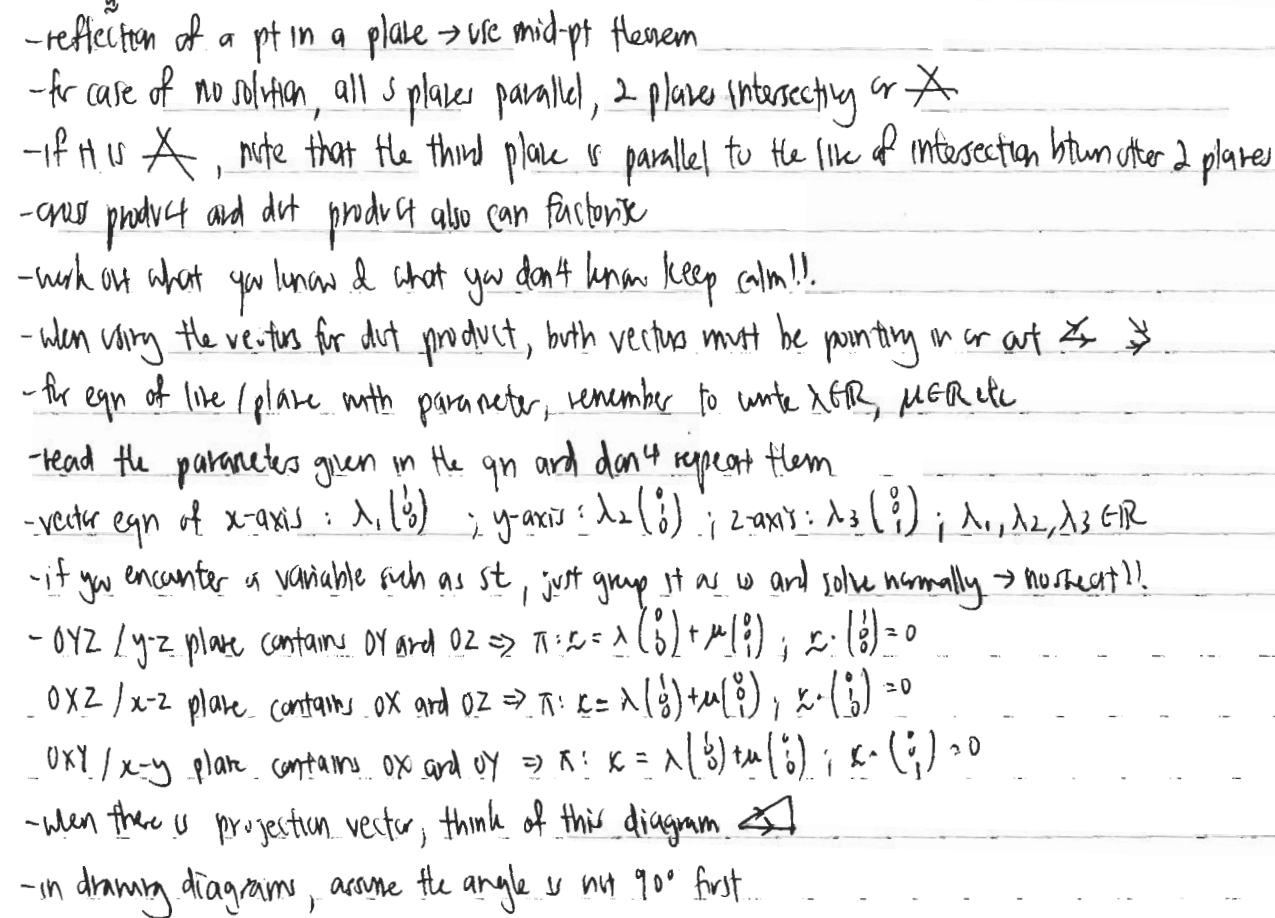 -reflection of a pt in a plane → use mid-pt theorem
-for case of no solution, all 3 planes parallel, 2 planes intersecting or
-if it is , note that the third plane is parallel to the line of intersection btwn other 2 planes
-cross product and dot product also can factorise
-work out what you know & what you don't know keep calm!!.
-when using the vectors for dot product, both vectors must be pointing in or out
-for eqn of line / plane with parameter, remember to write λ∈ℝ, μ∈ℝ etc
-read the parameters given in the qn and don't repeat them
-vector eqn of x-axis : λ₁(1 0 0) ; y-axis : λ₂(0 1 0) ; z-axis : λ₃(0 0 1) ; λ₁, λ₂, λ₃ ∈ℝ
-if you encounter a variable such as st, just group st as w and solve normally → no sweat!!
- OYZ / y-z plane contains OY and OZ ⇒ π: r = λ(0 1 0) + μ(0 0 1) ; r·(1 0 0) = 0
OXZ / x-z plane contains OX and OZ ⇒ π: r = λ(1 0 0) + μ(0 0 1) ; r·(0 1 0) = 0
OXY / x-y plane contains OX and OY ⇒ π: r = λ(1 0 0) + μ(0 1 0) ; r·(0 0 1) = 0
-when there is projection vector, think of this diagram
-in drawing diagrams, assume the angle is not 90° first